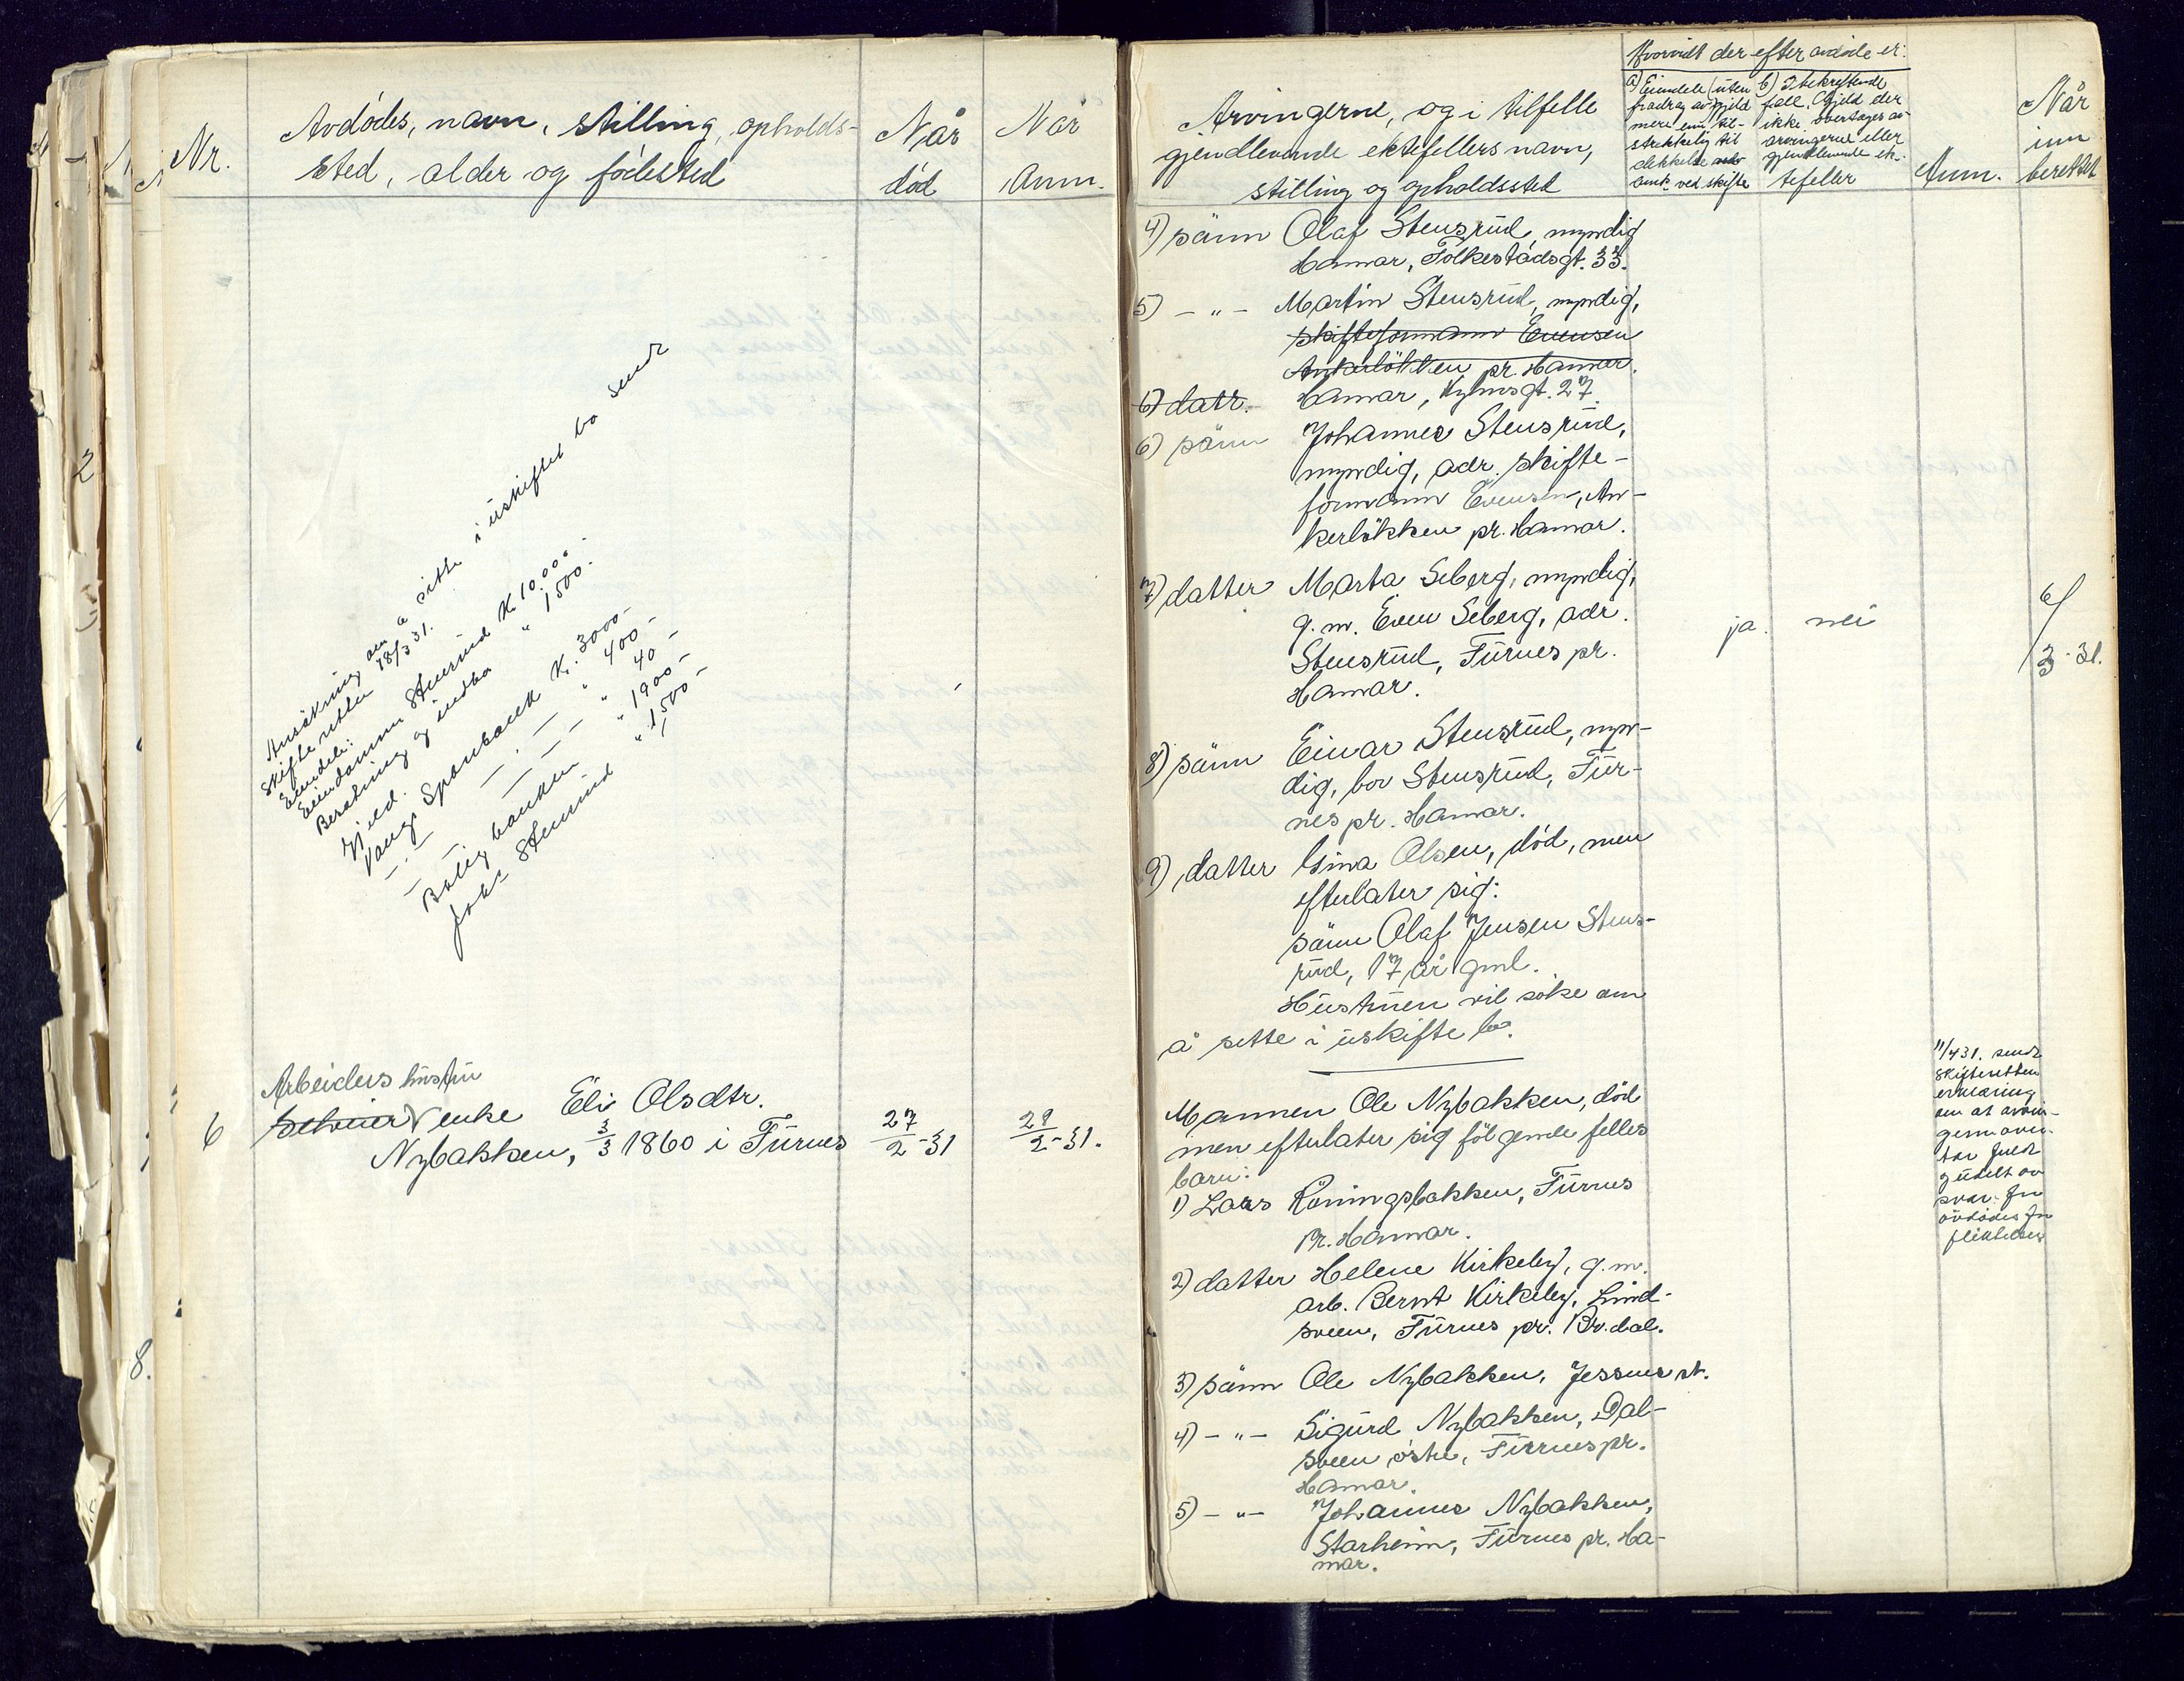 Nr.
Avdødes, navn, stilling, opholds-
sted, alder og fødested
Når
død
Når
Anm.
Ansökning om å sitte i uskiftet bo sendt
Skifteretten 18/3 31.
Eiendele:
Eiendommen Stensrud K. 10.00.-
Besetning og indbo " 1500.-
Gjeld.
Vang Sparebank K. 3000-
" 400-
" 40-
Boligbanken " 1900-
Johs Stensrud " 1,500-
6
Arbeiders hustru
Enke Eli Olsdtr.
Nybakken, 3/3 1860 i Furnes
27/2-31
28/2-31.
8.
Arvingerne, og i tilfelle
gjenlevende ektefellers navn,
stilling og opholdssted
Hvorvidt der efter avdøde er:
a) Eiendele (uten
fradrag av gjeld
mere enn til-
strekkelig til
dekkelse av
omk. ved skifte
b) I bekreftende
fall, Gjeld der
ikke overtages av
arvingerne eller
gjenlevende ek-
tefeller
Anm.
Når
inn
berettet
4) sönn Olaf Stensrud, myndig
Hamar, Folkestadsgt. 33.
5) - " - Martin Stensrud, myndig,
skifteformann Evensen
Ankerlökken pr. Hamar.
6) datr. Hamar, Nyhusgt. 27.
6) sönn Johannes Stensrud,
myndig, adr. skifte-
formann Evensen, An-
kerlökken pr. Hamar.
7) datter Marta Seberg, myndig,
g. m. Even Seberg, adr.
Stensrud, Furnes pr.
Hamar.
ja. nei
6/3-31.
8) sönn Einar Stensrud, myn-
dig, bor Stensrud, Fur-
nes pr. Hamar.
9) datter Gina Olsen, död, men
efterlater sig:
sönn Olaf Jensen Stens-
rud, 17 år gml.
Hustruen vil söke om
å sitte i uskifte bo.
Mannen Ole Nybakken, död
men efterlater sig fölgende felles
barn:
1) Lars Köningsbakken, Furnes
Pr. Hamar.
2) datter Helene Kirkeby, g. m.
arb. Bernt Kirkeby, Lund-
sveen, Furnes pr. Br.dal.
3) sönn Ole Nybakken, Jessnes st.
4) - " - Sigurd Nybakken, Dal-
sveen östre, Furnes pr.
Hamar.
5) - " - Johannes Nybakken,
Starheim, Furnes pr. Ha-
mar.
11/4 31. sendt
skifteretten
erklæring
om at arvin-
gerne over-
tar fuldt
gjeldt an
svar for
avdödes for
pliktelser